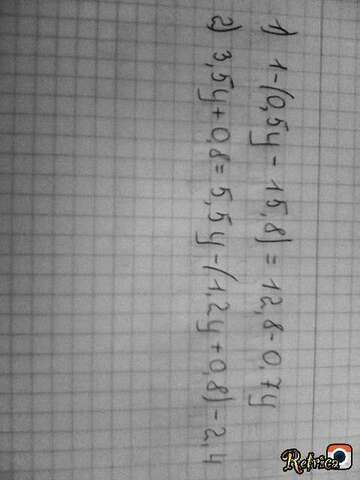 1) 1-(0,5y-15,8)=12,8-0,7y
2) 3,5y+0,8=5,5y-(1,2y+0,8)-2,4
Retrica